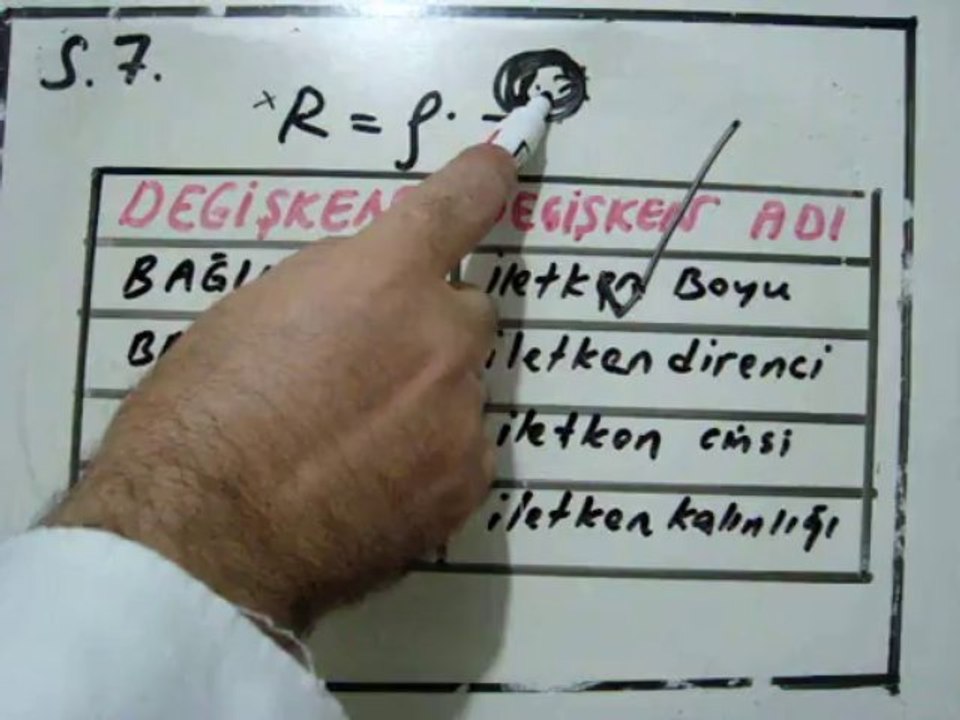 S. 7.
x R = ρ.
DEĞİŞKEN ADI
iletken Boyu
iletken direnci
iletken cinsi
iletken kalınlığı